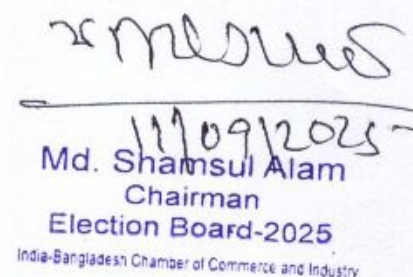 11/09/2025
Md. Shamsul Alam
Chairman
Election Board-2025
India-Bangladesh Chamber of Commerce and Industry